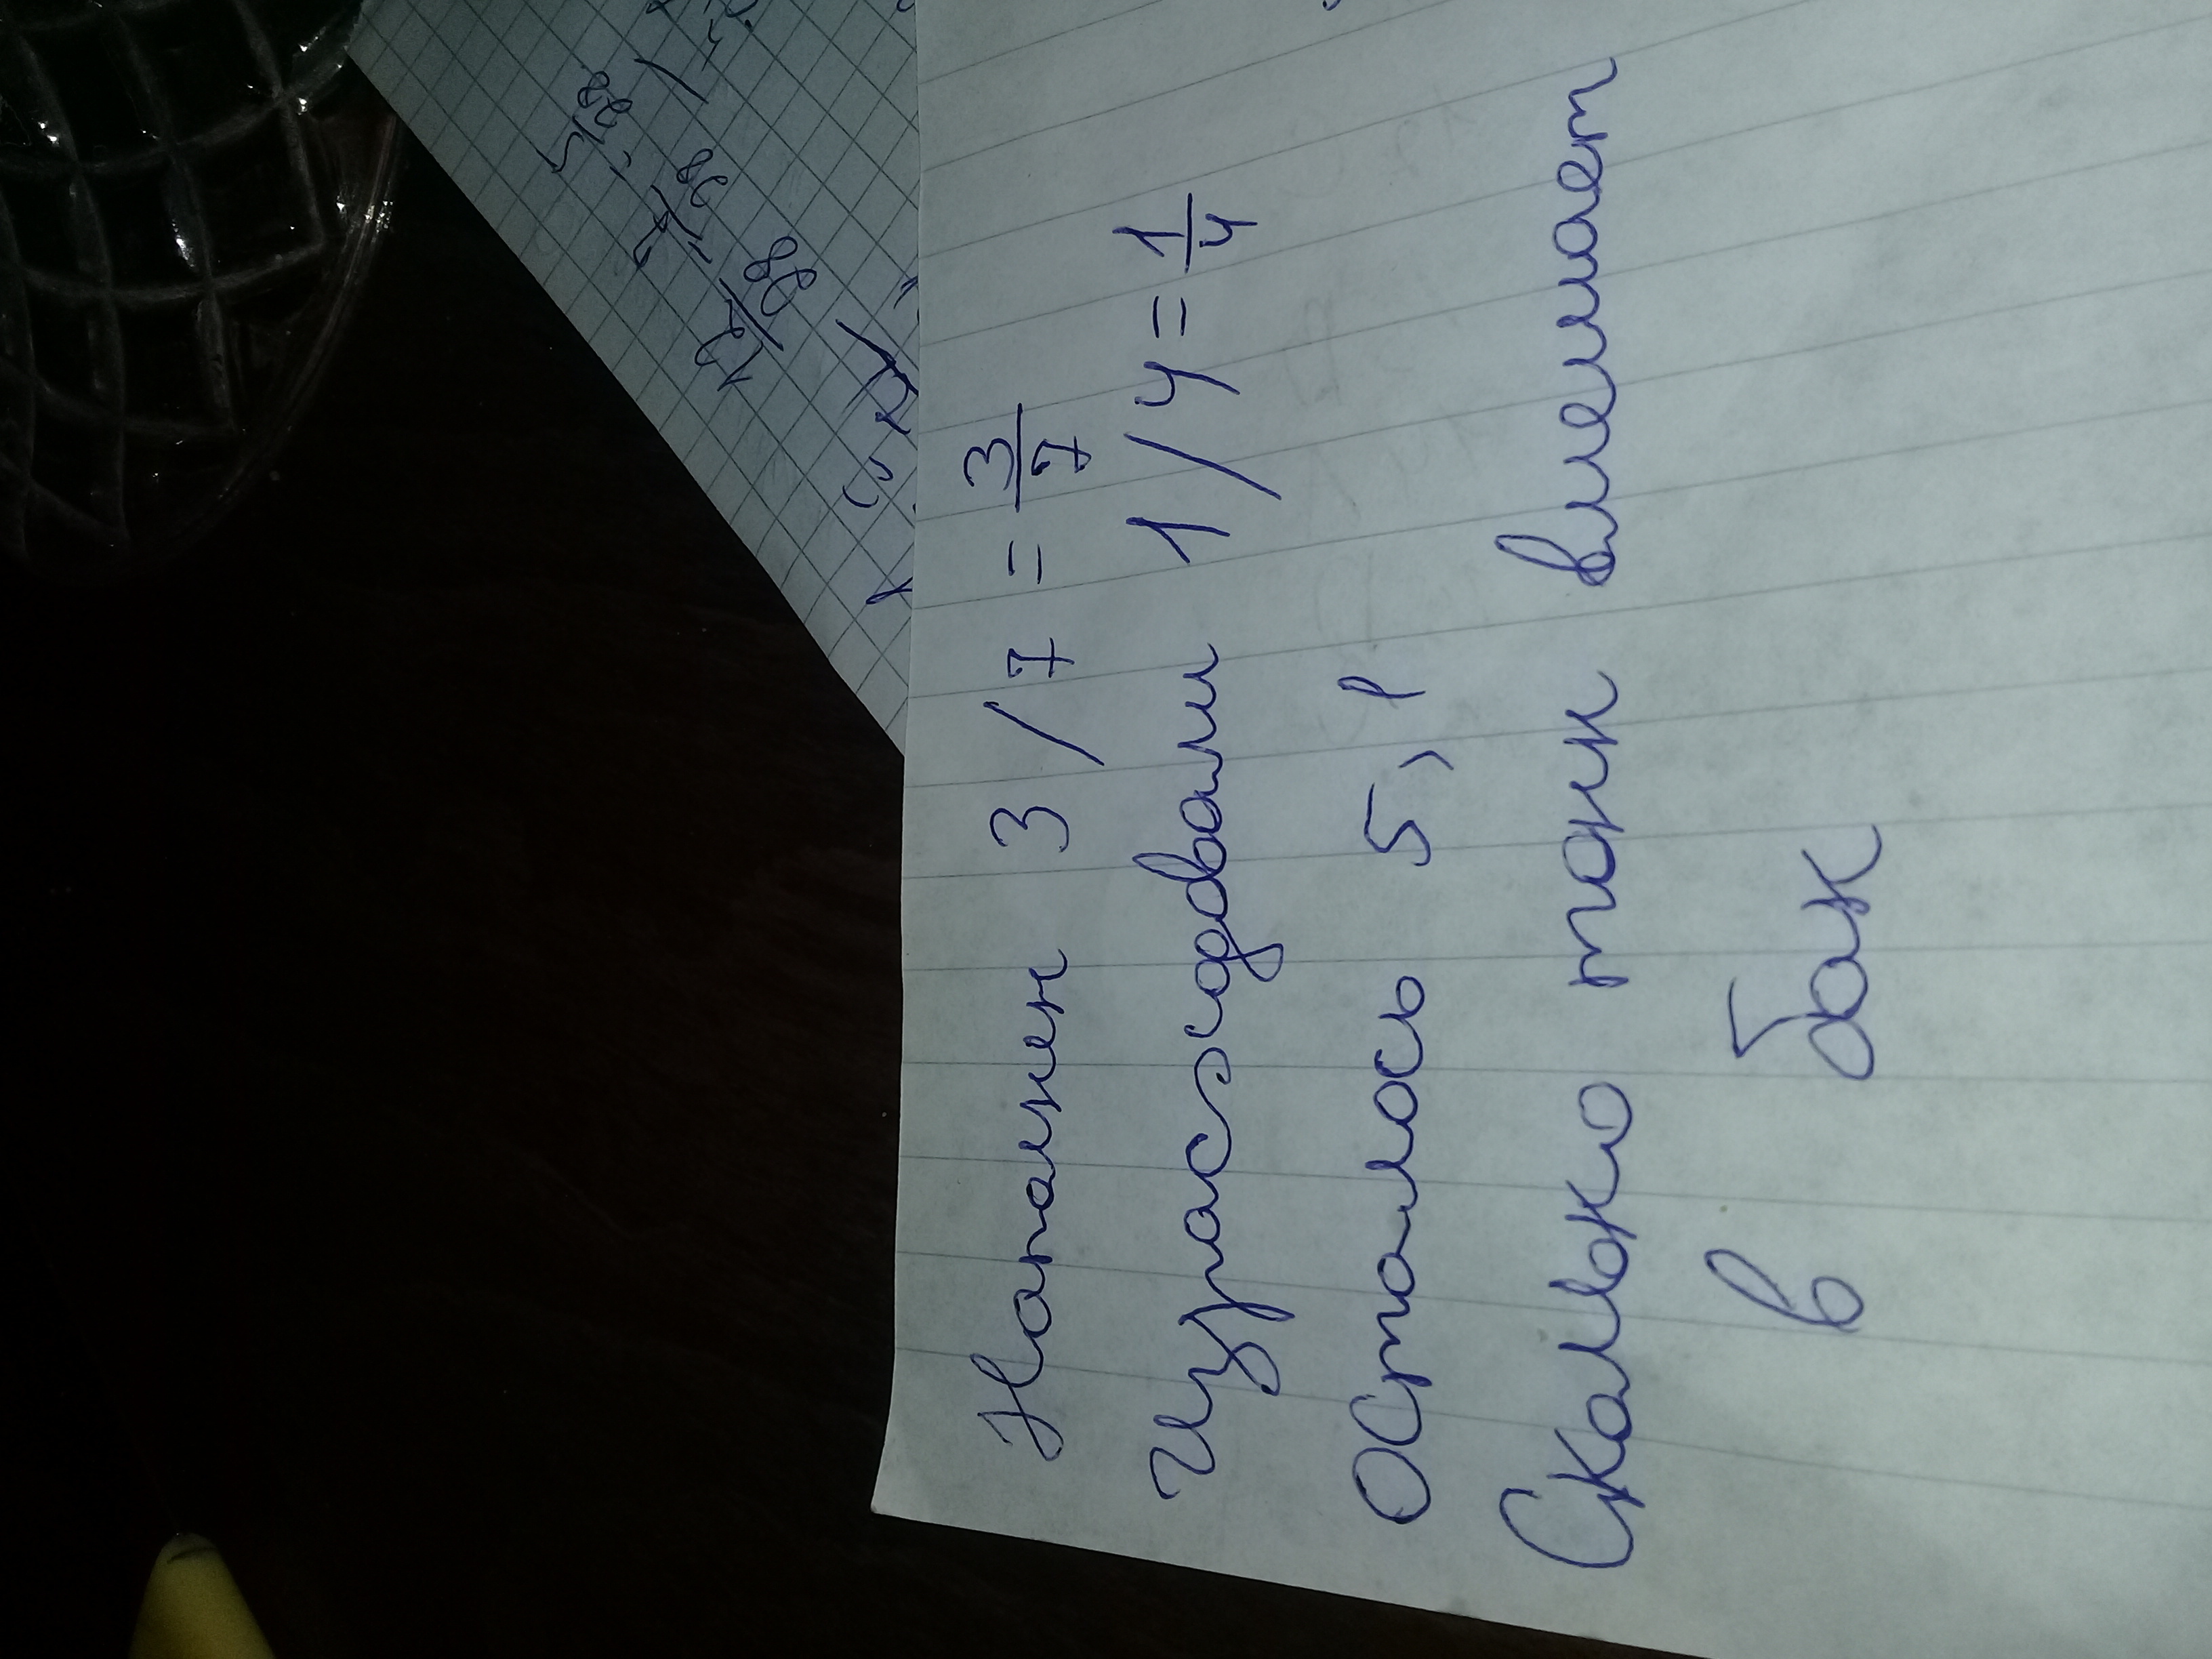 Наполнен 3/7 = 3/7
Израсходвали 1/4 = 1/4
Осталось 5,1
Сколько тонн вмещает
в бак
12/28